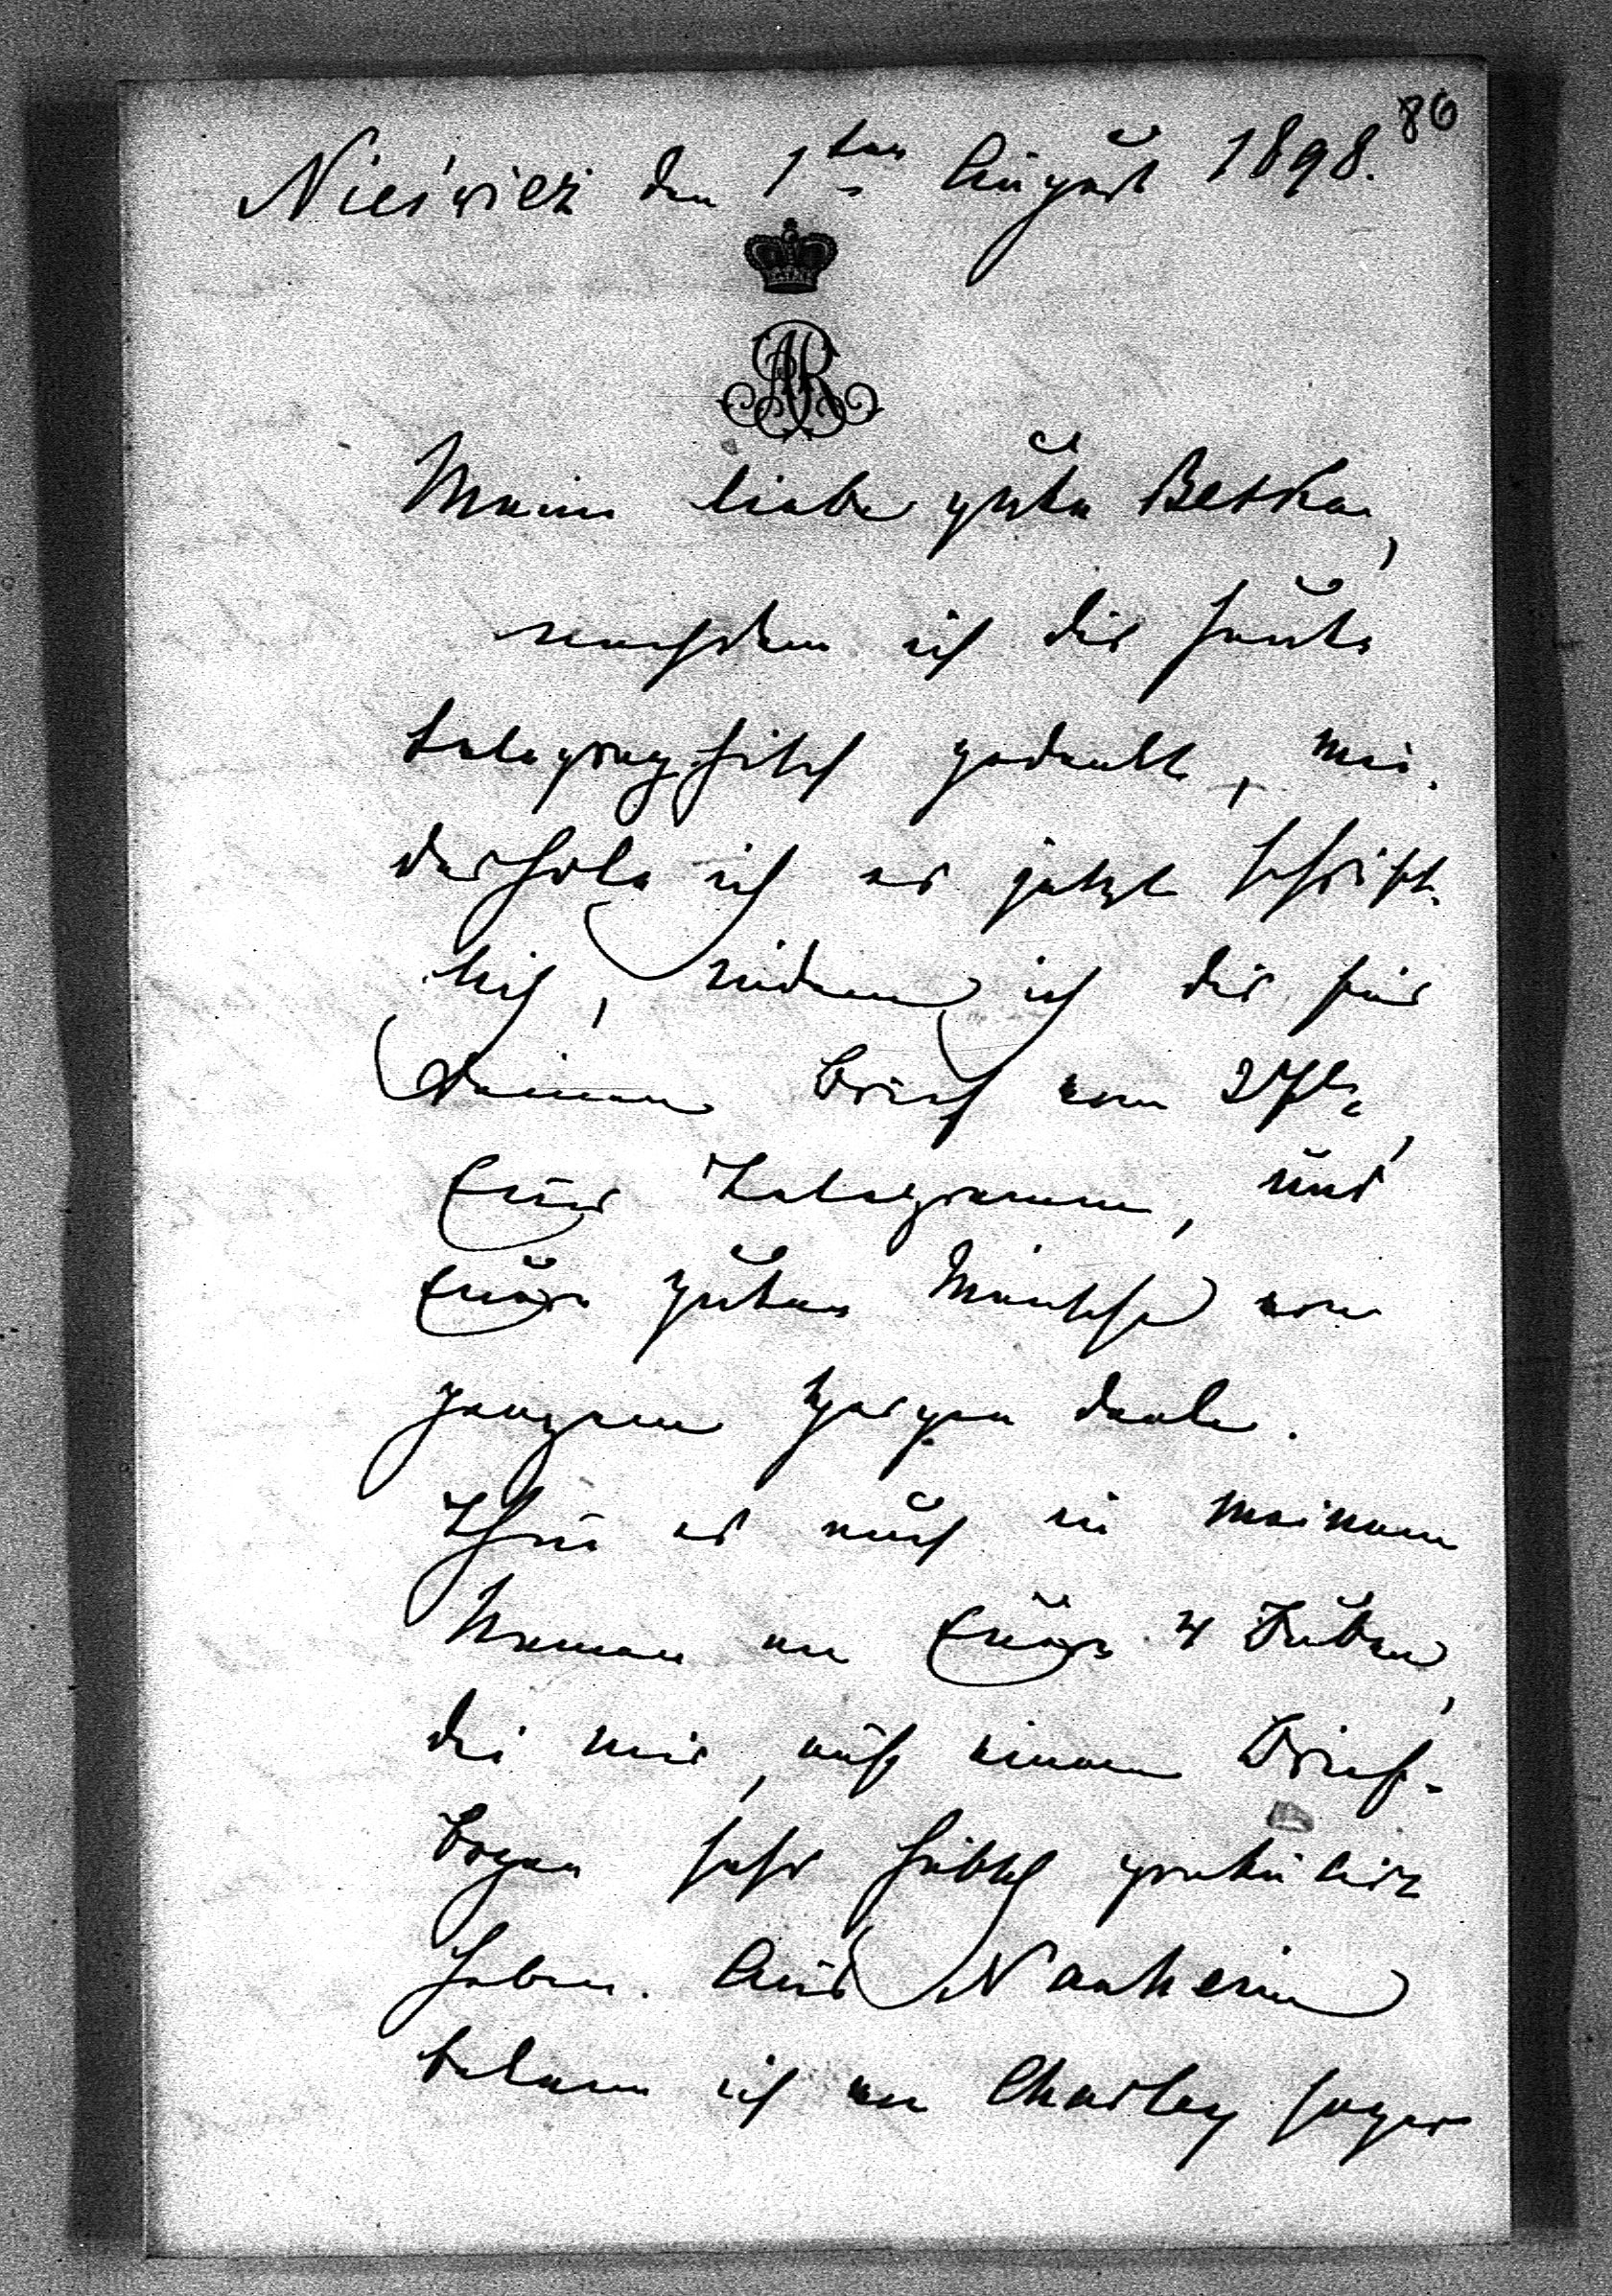 86
Nieśwież den 1ten August 1898.
AR
Meine liebe gute Betka,
nachdem ich dir heute
telegraphisch gedankt, wie-
derhole ich es jetzt schrift-
lich, indem ich dir für
Deinen Brief vom 27ten,
Euer Telegramm, und
Eure guten Wünsche von
ganzem Herzen danke.
Thue es auch in meinem
Namen an Eure 4 Buben,
die mir, auf einem Brief-
bogen sehr hübsch gratulirt
haben. Aus Nauheim
bekam ich von Charley sogar